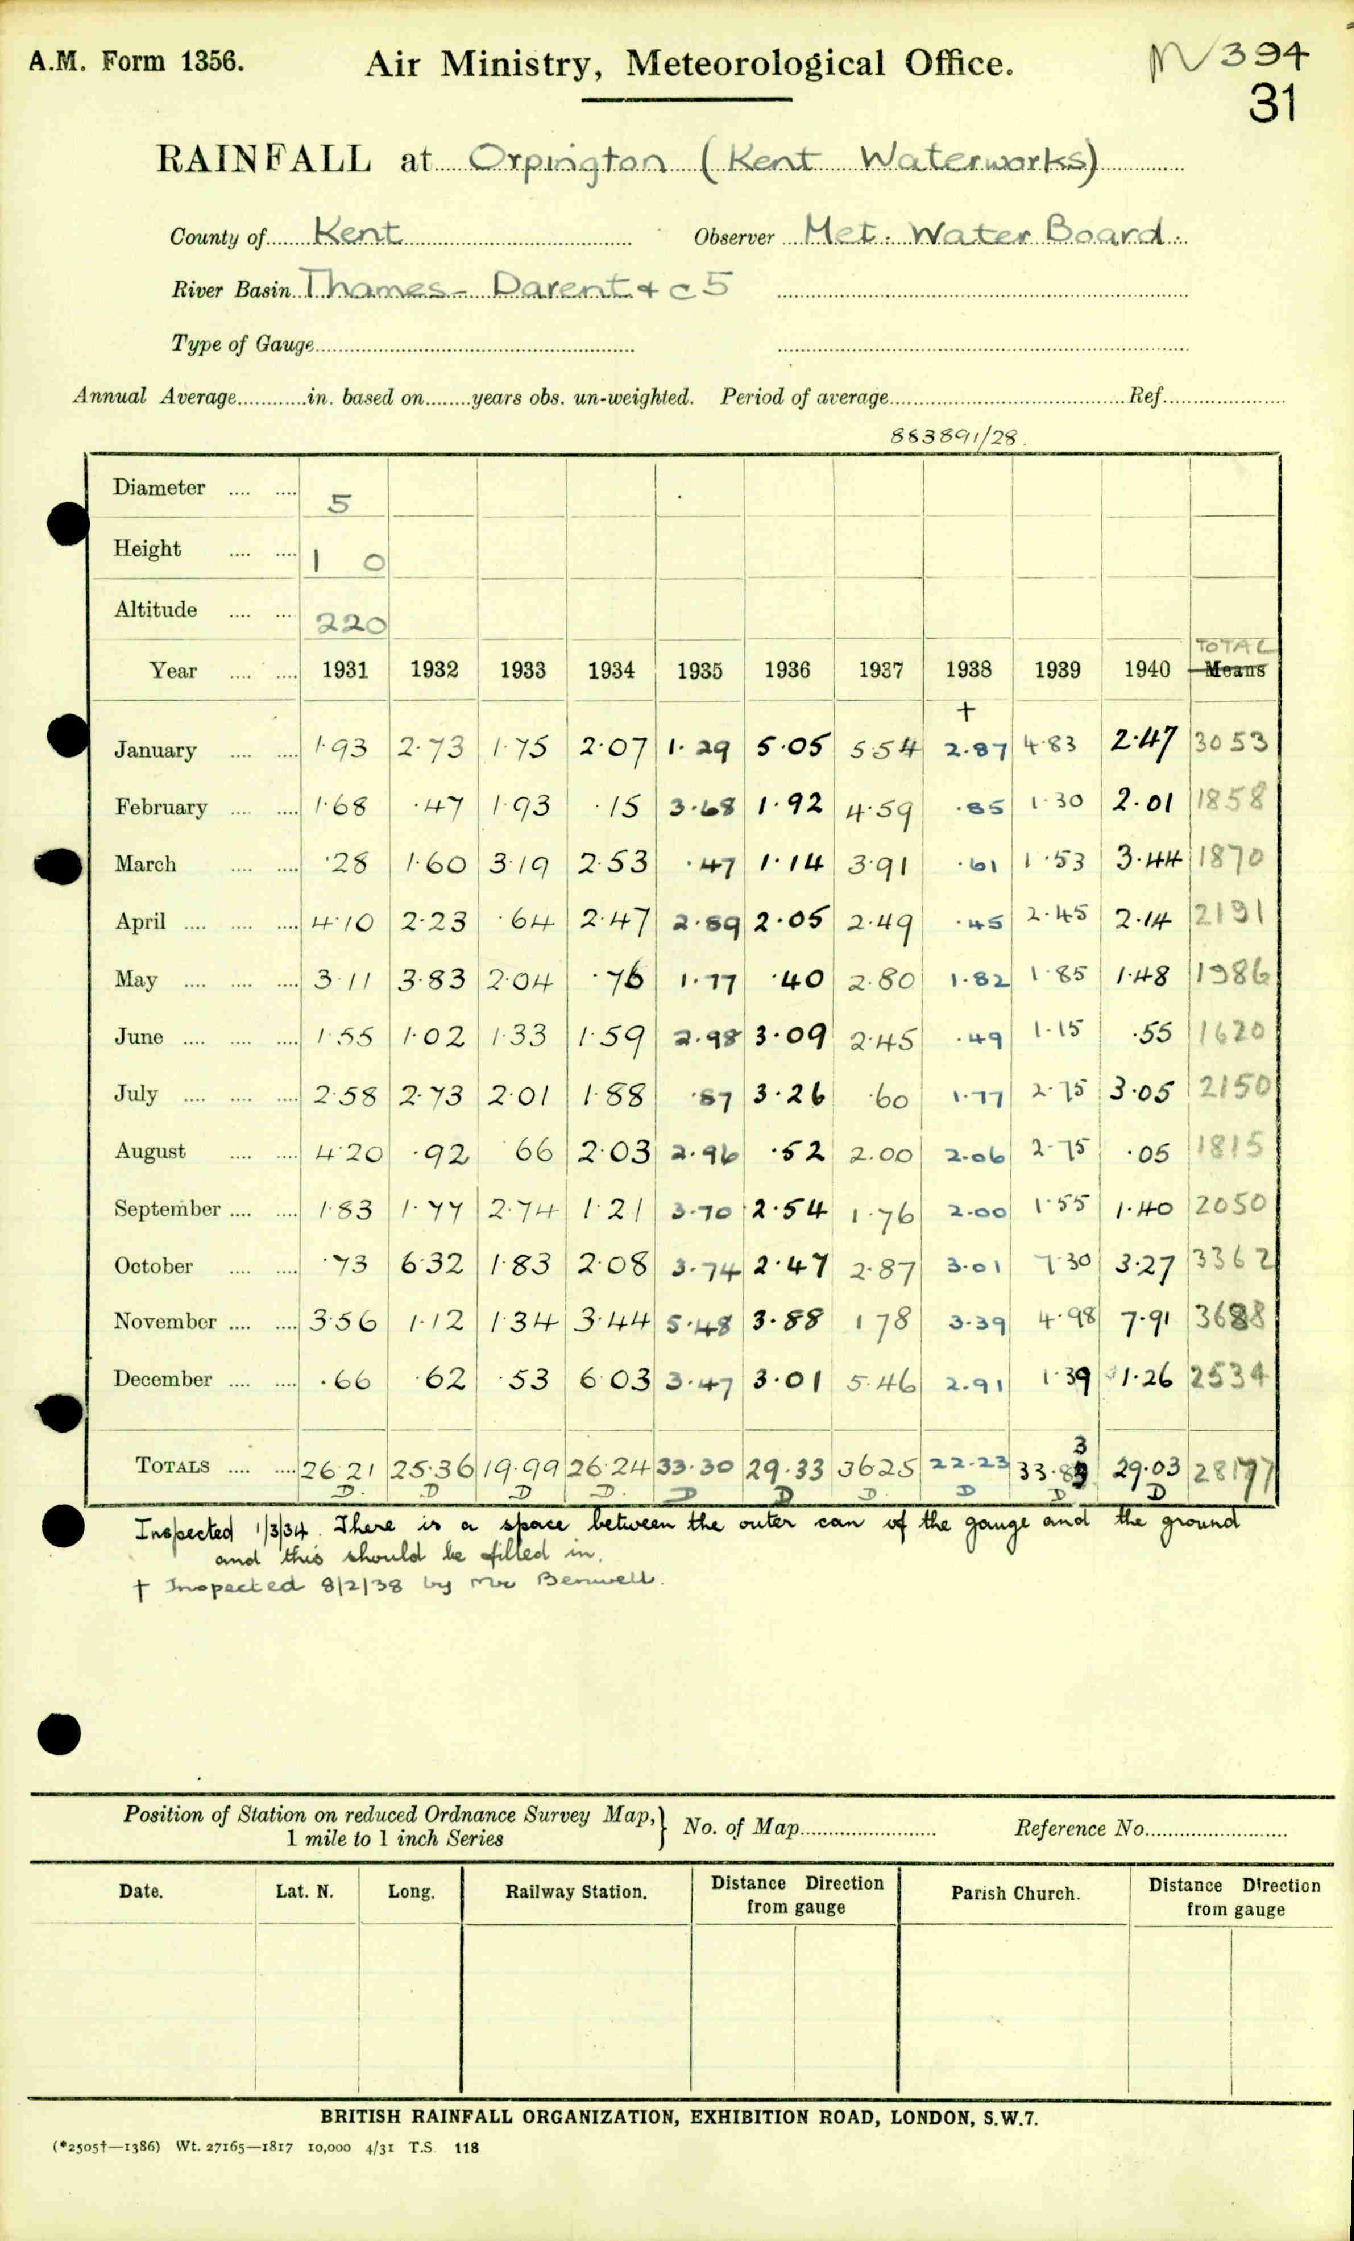 A.M. Form 1356.
Air Ministry, Meteorological Office.
394
31
RAINFALL at Orpington (Kent Waterworks)
County of Kent Observer Met. Water Board.
River Basin Thames - Darent & c 5
Type of Gauge
Annual Average in. based on years obs. un-weighted. Period of average Ref.
883891/28.
Diameter 5
Height 1 0
Altitude 220
TOTAL
Year 1931 1932 1933 1934 1935 1936 1937 1938 1939 1940 Means
+
January 1.93 2.73 1.75 2.07 1.29 5.05 5 54 2.87 4.83 2.47 30 53
February 1.68 .47 1.93 .15 3.68 1.92 4.59 .85 1.30 2.01 18 58
March .28 1.60 3.19 2.53 .47 1.14 3.91 .61 1.53 3.44 18 70
April 4.10 2.23 .64 2.47 2.89 2.05 2.49 .45 2.45 2.14 21 91
May 3.11 3.83 2.04 .76 1.77 .40 2.80 1.82 1.85 1.48 19 86
June 1.55 1.02 1.33 1.59 2.98 3.09 2.45 .49 1.15 .55 16 20
July 2.58 2.73 2.01 1.88 .87 3.26 .60 1.77 2.75 3.05 21 50
August 4.20 .92 66 2.03 2.96 .52 2.00 2.06 2.75 .05 18 15
September 1.83 1.77 2.74 1.21 3.70 2.54 1.76 2.00 1.55 1.40 20 50
October .73 6.32 1.83 2.08 3.74 2.47 2.87 3.01 7.30 3.27 33 62
November 3.56 1.12 1.34 3.44 5.48 3.88 1 78 3.39 4.98 7.91 36 88
December .66 .62 .53 6.03 3.47 3.01 5.46 2.91 1.39 1.26 25 34
3
TOTALS 26.21 25.36 19.99 26.24 33.30 29.33 36 25 22.23 33.8 29.03 281 77
D D D D D D D D D D
Inspected 1/3/34. There is a space between the outer can of the gauge and the ground
and this should be filled in.
† Inspected 8/2/38 by Mr Benwell.
Position of Station on reduced Ordnance Survey Map,} No. of Map Reference No.
1 mile to 1 inch Series
Date. Lat. N. Long. Railway Station. Distance Direction from gauge Parish Church. Distance Direction from gauge
BRITISH RAINFALL ORGANIZATION, EXHIBITION ROAD, LONDON, S.W.7.
(*2505†—1386) Wt. 27165—1817 10,000 4/31 T.S. 118